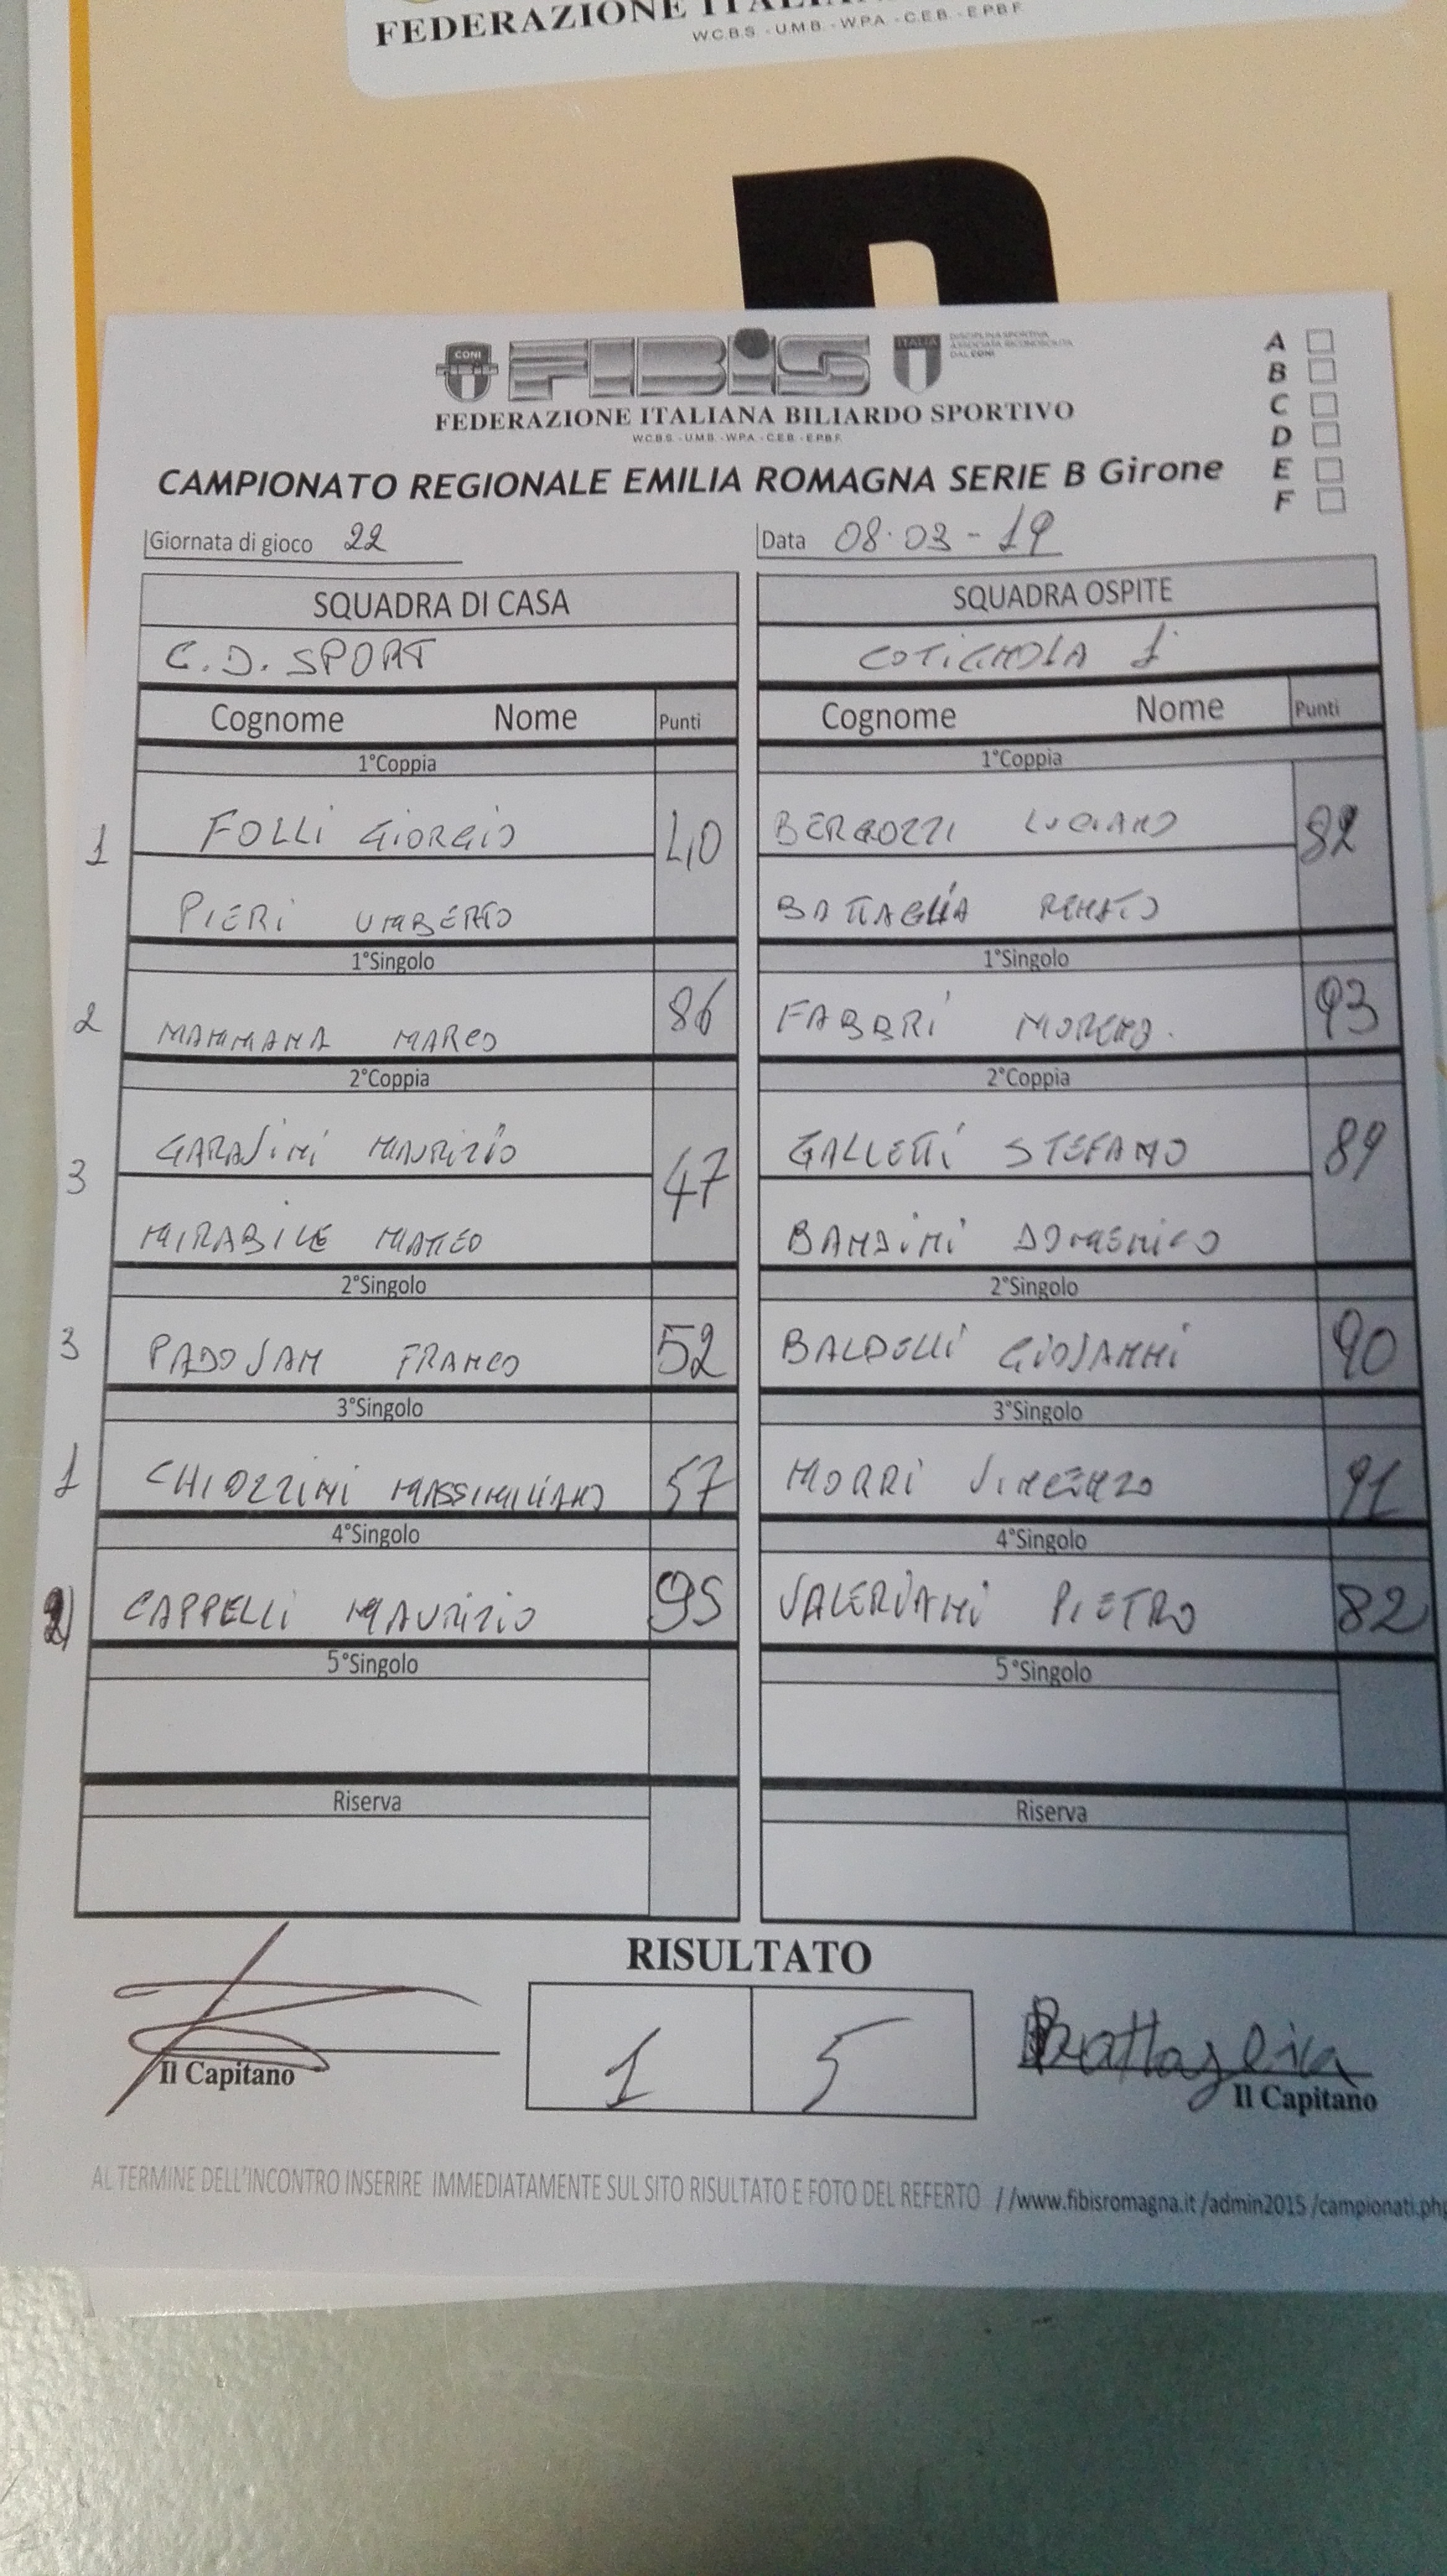 FEDERAZIONE ITALIA
W.C.B.S. - U.M.B. - W.P.A. - C.E.B. - E.P.B.F.
CONI FIBIS ITALIA DISCIPLINA SPORTIVA
ASSOCIATA RICONOSCIUTA
DAL CONI
FEDERAZIONE ITALIANA BILIARDO SPORTIVO
W.C.B.S. - U.M.B. - W.P.A. - C.E.B. - E.P.B.F.
A
B
C
D
E
F
CAMPIONATO REGIONALE EMILIA ROMAGNA SERIE B Girone
Giornata di gioco 22 Data 08.03-19
SQUADRA DI CASA SQUADRA OSPITE
C.D. SPORT COTIGNOLA 1
Cognome Nome Punti Cognome Nome Punti
1°Coppia 1°Coppia
1 FOLLI GIORGIO 40 BERGOZZI LUCIANO 82
PIERI UMBERTO BATTAGLIA RENATO
1°Singolo 1°Singolo
2 MAMMANA MARCO 86 FABBRI MORENO. 93
2°Coppia 2°Coppia
3 GARAVINI MAURIZIO 47 GALLETTI STEFANO 89
MIRABILE MATTEO BANDINI DOMENICO
2°Singolo 2°Singolo
3 PADOVAN FRANCO 52 BALDELLI GIOVANNI 90
3°Singolo 3°Singolo
1 CHIOZZINI MASSIMILIANO 57 MORRI VINCENZO 91
4°Singolo 4°Singolo
2 CAPPELLI MAURIZIO 95 VALERIANI PIETRO 82
5°Singolo 5°Singolo
Riserva Riserva
RISULTATO
1 5
Battaglia
Il Capitano Il Capitano
AL TERMINE DELL'INCONTRO INSERIRE IMMEDIATAMENTE SUL SITO RISULTATO E FOTO DEL REFERTO //www.fibisromagna.it /admin2015 /campionati.php